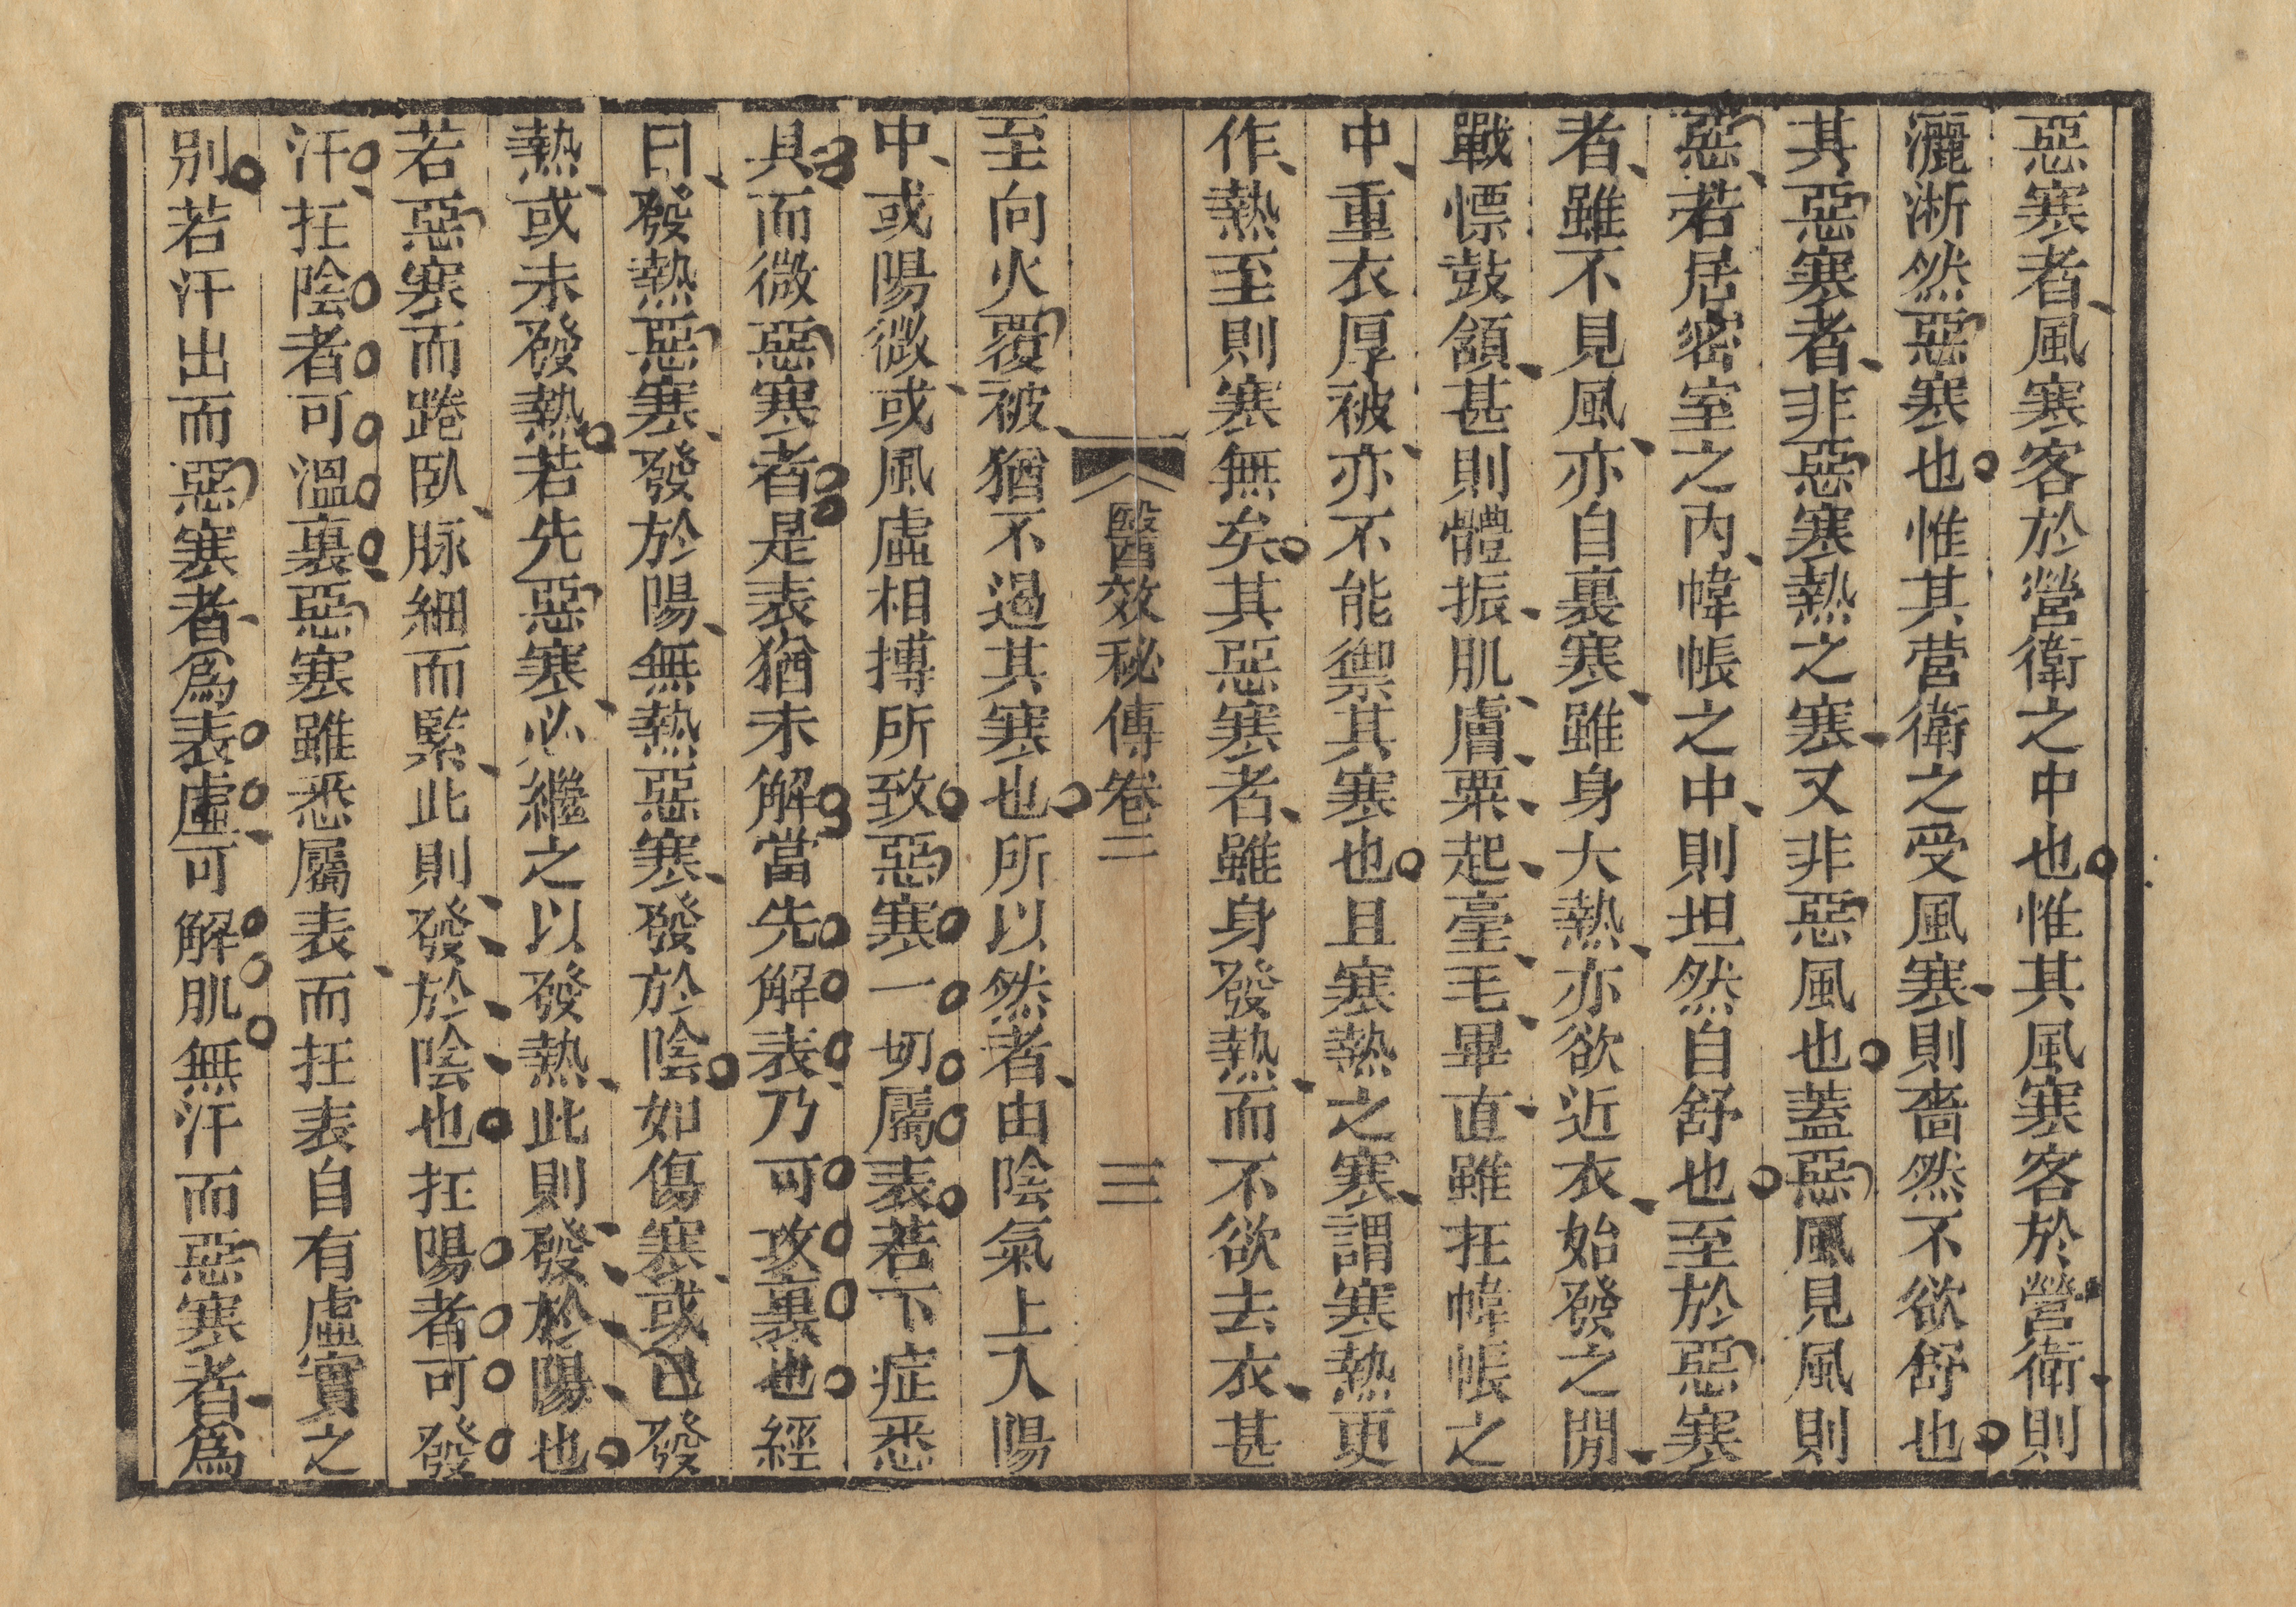 惡寒者風寒客於營衛之中也惟其風寒客於營衛則
灑淅然惡寒也惟其營衛之受風寒則嗇然不欲舒也
其惡寒者非惡寒熱之寒又非惡風也蓋惡風見風則
惡若居密室之內幃帳之中則坦然自舒也至於惡寒
者雖不見風亦自裏寒雖身大熱亦欲近衣始發之閒
戰慄鼓頷甚則體振肌膚粟起毫毛畢直雖在幃帳之
中重衣厚被亦不能禦其寒也且寒熱之寒謂寒熱更
作熱至則寒無矣其惡寒者雖身發熱而不欲去衣甚
醫效秘傳卷二 三
至向火覆被猶不過其寒也所以然者由陰氣上入陽
中或陽微或風虛相搏所致惡寒一切屬表若下症悉
具而微惡寒者是表猶未解當先解表乃可攻裏也經
曰發熱惡寒發於陽無熱惡寒發於陰如傷寒或已發
熱或未發熱若先惡寒必繼之以發熱此則發於陽也
若惡寒而踡臥脉細而緊此則發於陰也在陽者可發
汗在陰者可溫裏惡寒雖悉屬表而在表自有虛實之
別若汗出而惡寒者爲表虛可解肌無汗而惡寒者爲